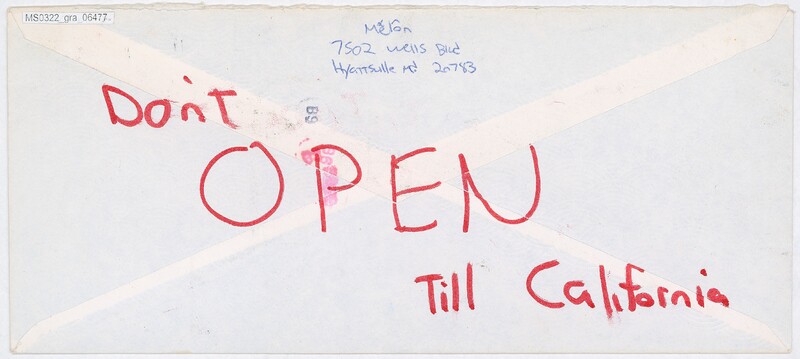 MS0322_gra_06477
Melton
7502 Wells Blvd
Hyattsville Md 20783
Don't
B9
OPEN
Till California